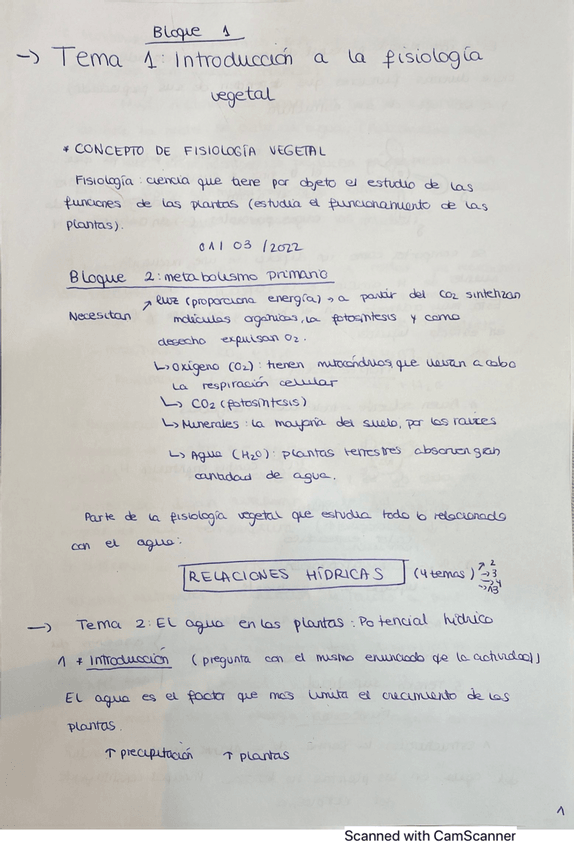 Bloque 1
→ Tema 1: Introducción a la fisiología
vegetal
* CONCEPTO DE FISIOLOGÍA VEGETAL
Fisiología: ciencia que tiene por objeto el estudio de las
funciones de las plantas (estudia el funcionamiento de las
plantas).
01/03/2022
Bloque 2: metabolismo primario
Necesitan ↗ luz (proporciona energía) → a partir del CO2 sintetizan
moléculas orgánicas, la fotosíntesis y como
desecho expulsan O2.
↳ Oxígeno (O2): tienen mitocondrias, que llevan a cabo
la respiración celular
↳ CO2 (fotosíntesis)
↳ Minerales: la mayoría del suelo, por las raíces
↳ Agua (H2O): plantas terrestres absorven gran
cantidad de agua.
Parte de la fisiología vegetal que estudia todo lo relacionado
con el agua:
RELACIONES HÍDRICAS (4 temas) ↗ 2
→ 3
→ 4
→ 13
→ Tema 2: El agua en las plantas: Potencial hídrico
1 * Introducción (pregunta con el mismo enunciado que la actividad)
El agua es el factor que más limita el crecimiento de las
plantas.
↑ precipitación ↑ plantas
1
Scanned with CamScanner